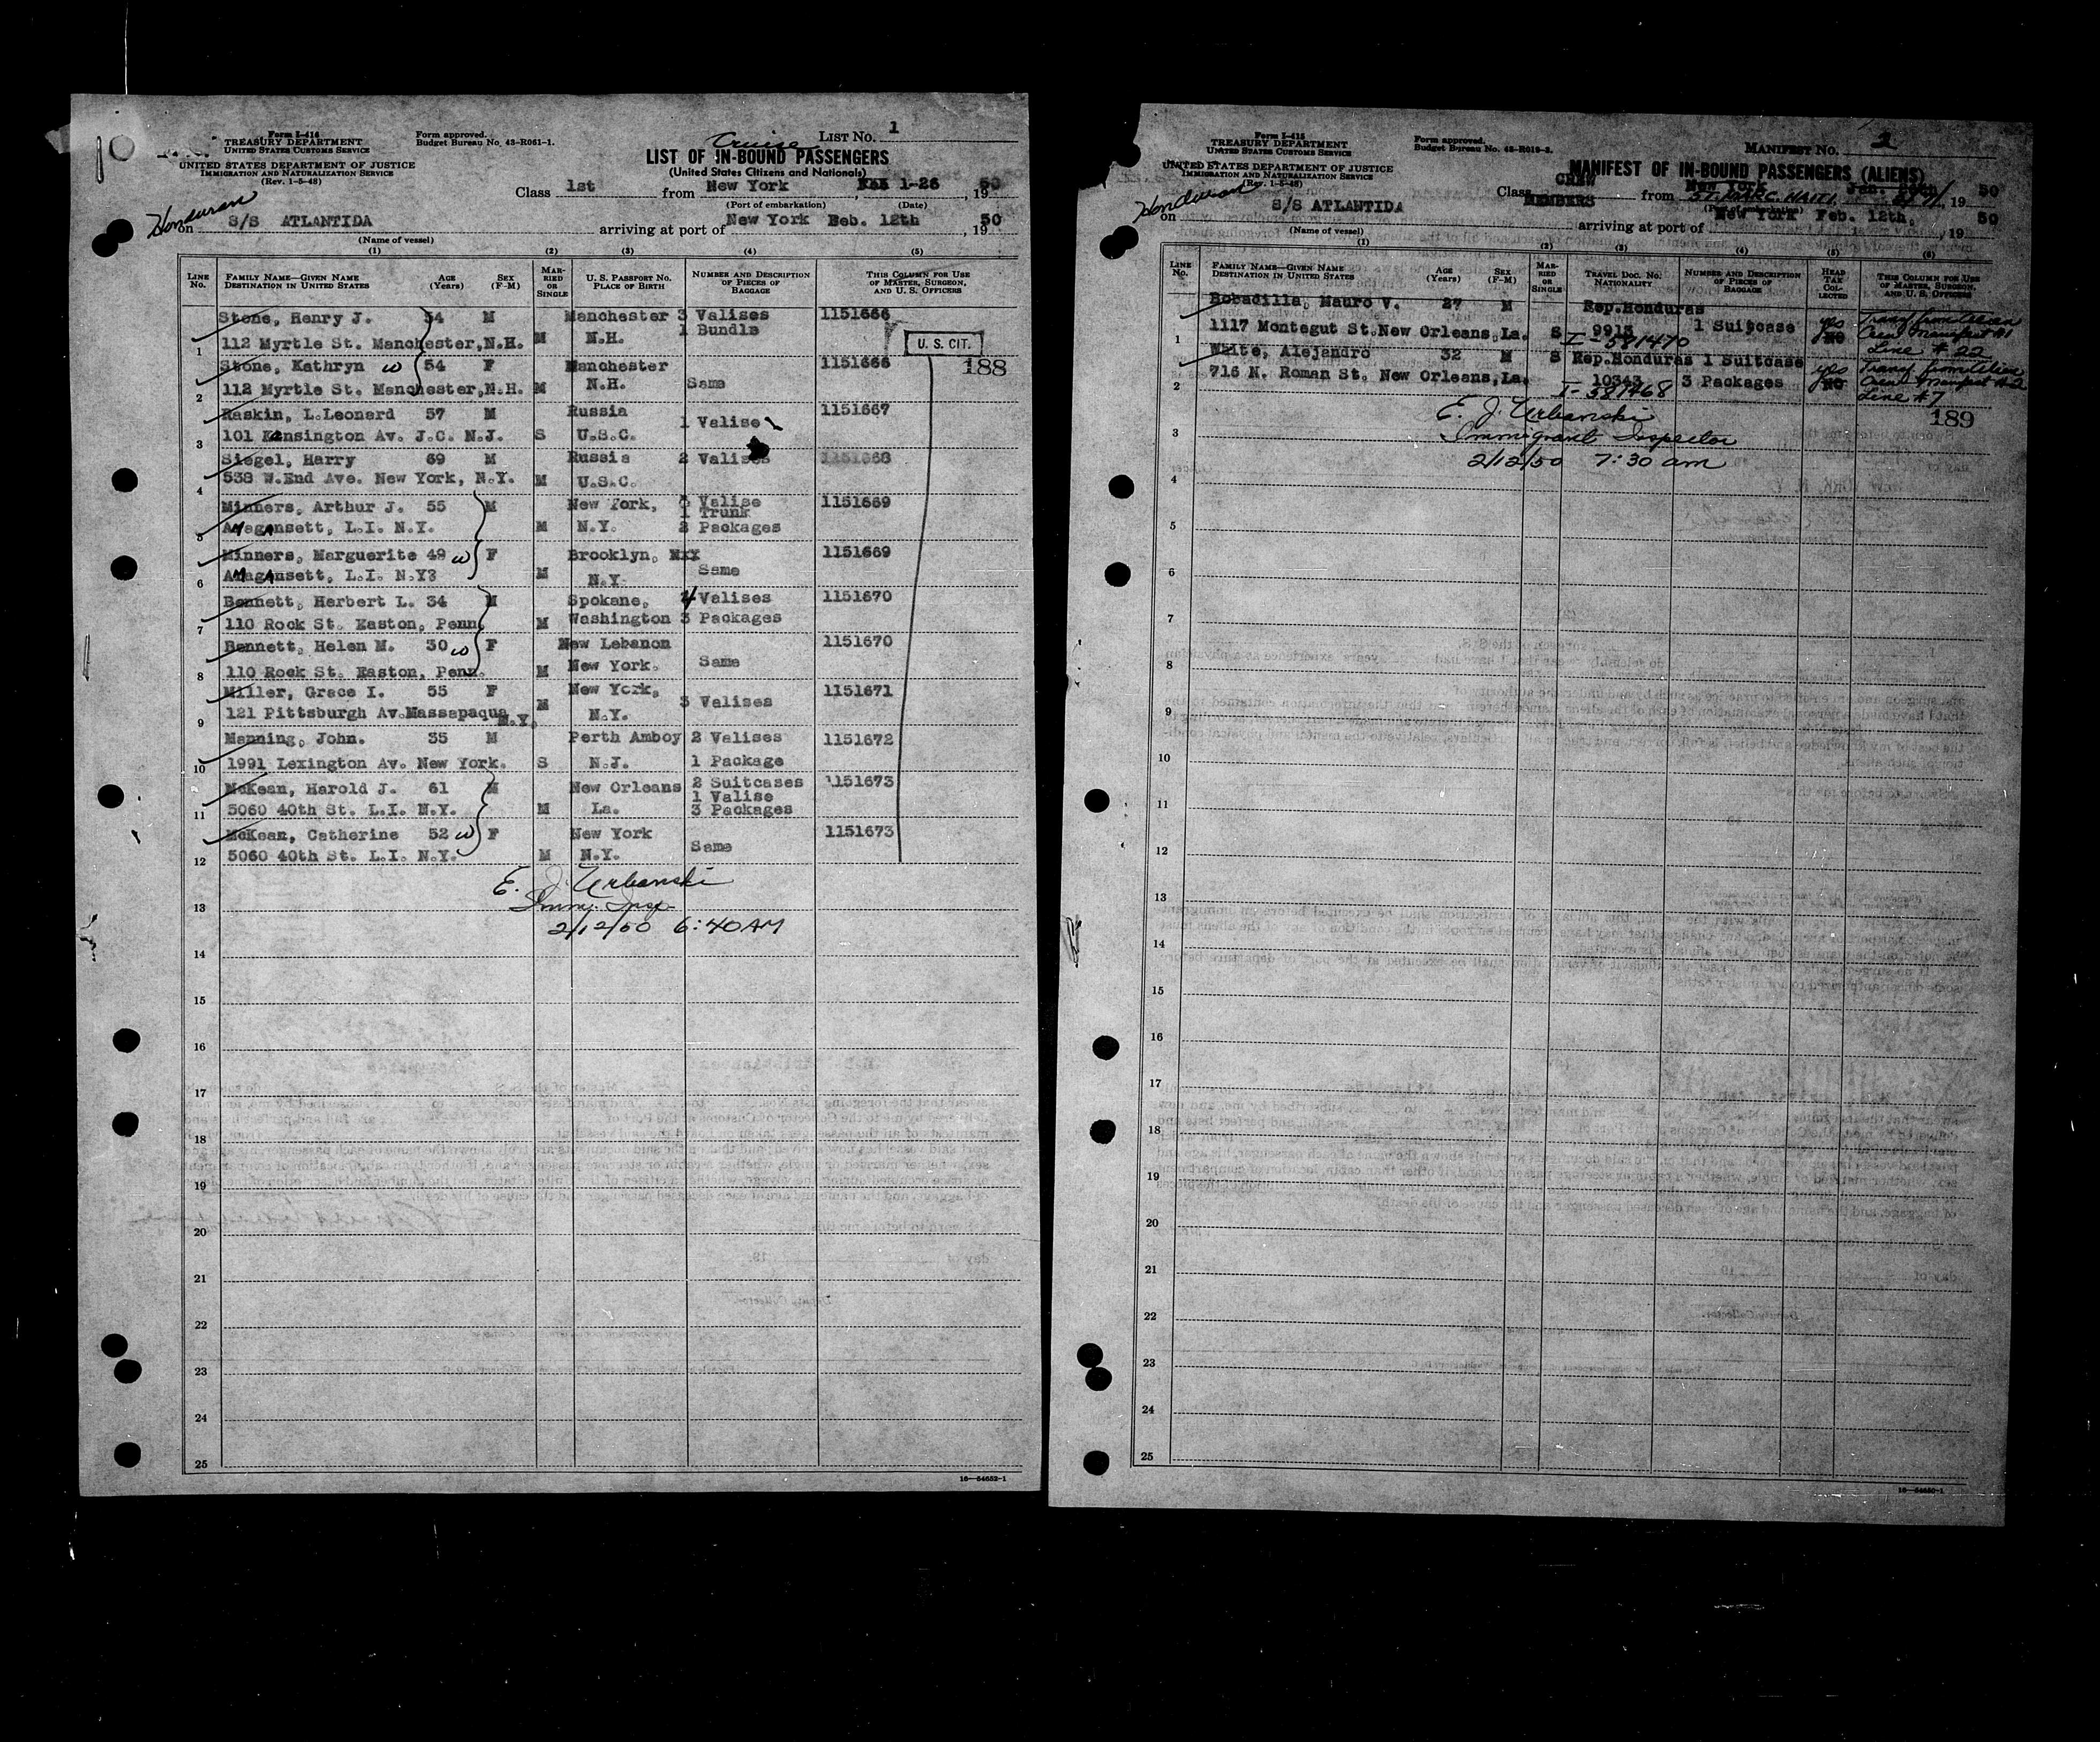 Form I-416
TREASURY DEPARTMENT
UNITED STATES CUSTOMS SERVICE
UNITED STATES DEPARTMENT OF JUSTICE
IMMIGRATION AND NATURALIZATION SERVICE
(Rev. 1-5-48)
Form approved.
Budget Bureau No. 43-R061-1.
LIST No. 1
Cruise
LIST OF IN-BOUND PASSENGERS
(United States Citizens and Nationals)
Class 1st from New York 1-26, 19 50
(Port of embarkation) (Date)
Honduran
on S/S ATLANTIDA arriving at port of New York Feb. 12th, 19 50
(Name of vessel)
(1) (2) (3) (4) (5)
LINE No. FAMILY NAME—GIVEN NAME DESTINATION IN UNITED STATES AGE (Years) SEX (F-M) MARRIED OR SINGLE U. S. PASSPORT NO. PLACE OF BIRTH NUMBER AND DESCRIPTION OF PIECES OF BAGGAGE THIS COLUMN FOR USE OF MASTER, SURGEON, AND U. S. OFFICERS
Stone, Henry J. 54 M Manchester 3 Valises 1151666
1 112 Myrtle St. Manchester, N.H. M N.H. 1 Bundle
U. S. CIT.
188
Stone, Kathryn w 54 F Manchester 1151666
2 112 Myrtle St. Manchester, N.H. M N.H. Same
Raskin, L.Leonard 57 M Russia 1151667
3 101 Kensington Av. J.C. N.J. S U.S.C. 1 Valise
Siegel, Harry 69 M Russia 2 Valises 1151668
4 538 W.End Ave. New York, N.Y. M U.S.C.
Minners, Arthur J. 55 M New York, Valise 1151669
1 Trunk
5 AMagAnsett, L.I. N.Y. M N.Y. 2 Packages
Minners, Marguerite 49 w F Brooklyn, 1151669
6 AMagAnsett, L.I. N.Y? M N.Y. Same
Bennett, Herbert L. 34 M Spokane, 4 Valises 1151670
7 110 Rock St. Easton, Penn. M Washington 3 Packages
Bennett, Helen M. 30 w F New Lebanon 1151670
8 110 Rock St. Easton, Penn. M New York. Same
Miller, Grace I. 55 F New York, 1151671
9 121 Pittsburgh Av.Massapaqua N.Y. M N.Y. 3 Valises
Manning, John. 35 M Perth Amboy 2 Valises 1151672
10 1991 Lexington Av. New York. S N.J. 1 Package
McKean, Harold J. 61 M New Orleans 2 Suitcases 1151673
1 Valise
11 5060 40th St. L.I. N.Y. M La. 3 Packages
McKean, Catherine 52 w F New York 1151673
12 5060 40th St. L.I. N.Y. M N.Y. Same
E. J. Urbanski
13 Immg. Insp
2/12/50 6:40 AM
14
15
16
17
18
19
20
21
22
23
24
25
16—54652-1
Form I-415
TREASURY DEPARTMENT
UNITED STATES CUSTOMS SERVICE
UNITED STATES DEPARTMENT OF JUSTICE
IMMIGRATION AND NATURALIZATION SERVICE
(Rev. 1-5-48)
Form approved.
MANIFEST No.
MANIFEST OF IN-BOUND PASSENGERS (ALIENS)
Class CREW MEMBERS from ST. MARC. HAITI, 2/7/, 19 50
(Port of embarkation)
Honduran
on S/S ATLANTIDA arriving at port of New York Feb. 12th, 19 50
(Name of vessel)
(1) (2) (3) (4) (5) (6)
LINE No. FAMILY NAME—GIVEN NAME DESTINATION IN UNITED STATES AGE (Years) SEX (F-M) MARRIED OR SINGLE TRAVEL DOC. NO. NATIONALITY NUMBER AND DESCRIPTION OF PIECES OF BAGGAGE HEAD TAX COLLECTED THIS COLUMN FOR USE OF MASTER, SURGEON, AND U. S. OFFICERS
Bobadilla, Mauro V. 27 M Rep.Honduras
1 1117 Montegut St.New Orleans,La. S 9915 1 Suitcase yes Transf from Alien
I-581470 Crew Manifest #1
Line # 22
White, Alejandro 32 M S Rep.Honduras 1 Suitcase
2 715 N. Roman St. New Orleans,La. 10343 3 Packages yes Transf. from Alien
I-581468 Crew Manifest #2
Line #7
189
E. J. Urbanski
3 Immigrant Inspector
2/12/50 7:30 am
4
5
6
7
8
9
10
11
12
13
14
15
16
17
18
19
20
21
22
23
24
25
16—54650-1